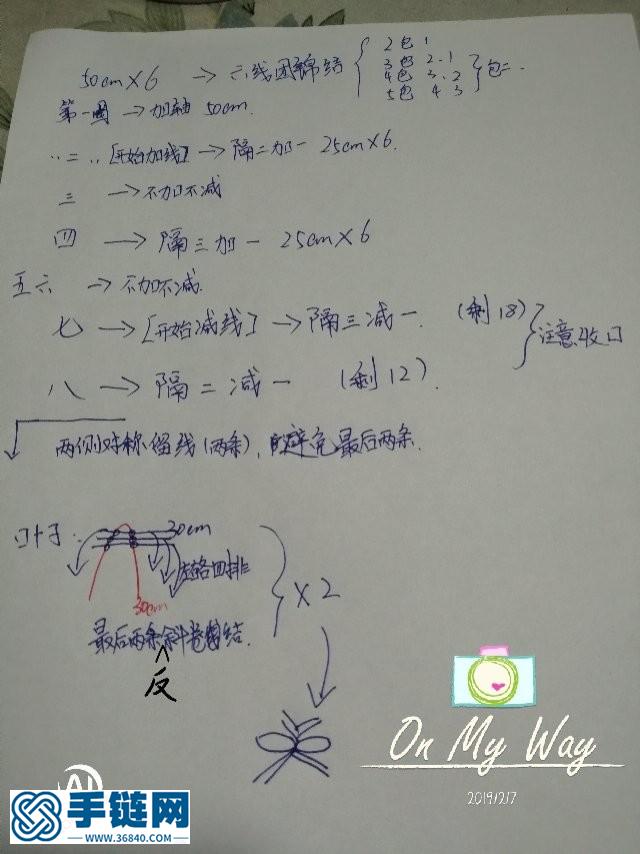 50cm×6 → 六线团锦结 { 2包1
3包 2.1
4包 3.2
5包 4 3 } 包二.
第一圈 → 加轴 50cm.
〃二〃 [开始加线] → 隔二加一 25cm×6.
三 → 不加不减
四 → 隔三加一 25cm×6
五六 → 不加不减
七 → [开始减线] → 隔三减一. (剩18)
八 → 隔二减一 (剩12). } 注意收口
两侧对称留线(两条), 避免最后两条.
叶子: 30cm
四排
30cm
×2
最后两条斜卷结.
反
On My Way
2019/2/7
手链网
WWW.36840.COM